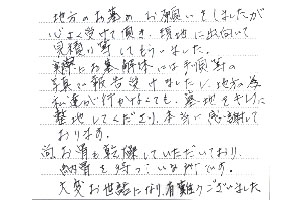 地方のお墓のお願いをしましたが
心よく受けて頂き、現地に出向いて
見積り等してもらいました。
実際にお墓解体には手順等の
写真で報告受けましたし、地方の為
私達が行かなくても、墓地をキレイに
整地してくださり、本当に感謝して
おります。
尚、お骨も乾燥していただいており
納骨を待っている状態です。
大変お世話になり有難うございました